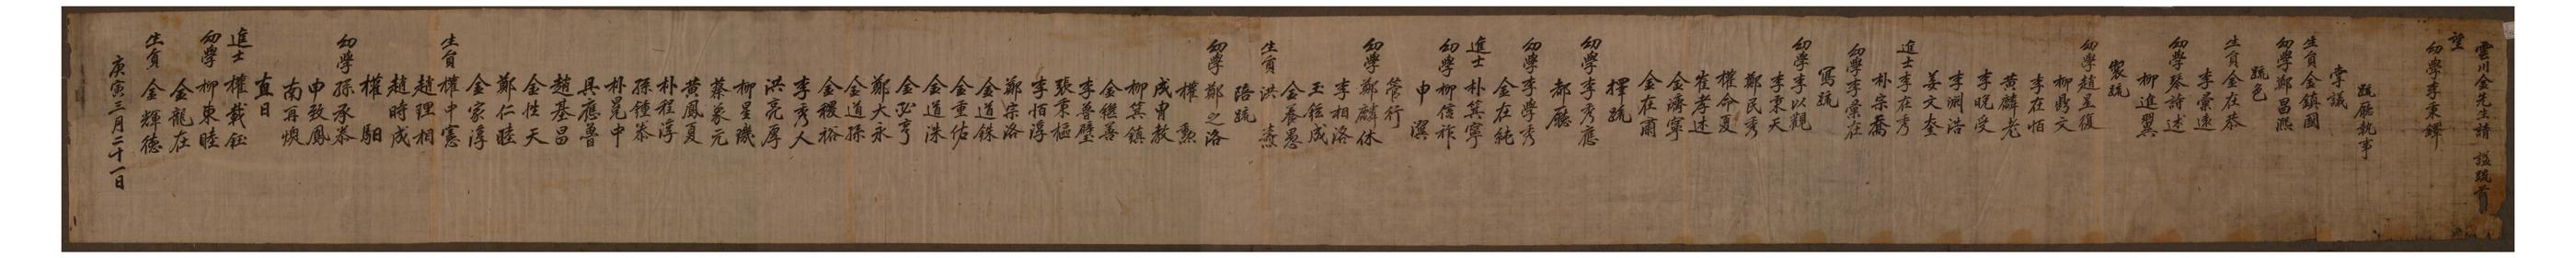 雲川金先生請 謚疏首
望
幼學李秉鐸
疏廳執事
掌議
生員金鎭國
幼學鄭昌熙
疏色
生員金在恭
李彙遠
幼學琴詩述
柳進翼
製疏
幼學趙星復
柳鼎文
李在恒
黃麟老
李晩受
李淵浩
姜文奎
進士李在秀
朴宗喬
幼學李彙在
寫疏
幼學李以觀
李秉天
鄭民秀
權命夏
崔孝述
金濟寧
金在爾
擇疏
幼學李秀應
都廳
幼學李學秀
金在純
進士朴箕寧
幼學柳信祚
申 溟
管行
幼學鄭麟休
李相洛
玉鉉成
金養愚
生員洪
陪疏
幼學鄭之洛
權
成冑教
柳箕鎭
金繼善
李普壁
張秉樞
李恒淳
鄭宗洛
金道銖
金重佑
金道洙
金弘亨
鄭大永
金道孫
金稷裕
李秀人
洪亮厚
柳星璣
蔡象元
黃鳳夏
朴程淳
孫鍾泰
朴晃中
具應魯
趙基昌
金性天
鄭仁睦
金家淳
生員權中憲
趙理相
趙時成
權 馹
幼學孫承泰
申致鳳
南再煥
直日
進士權載鈺
幼學柳東睦
金龍在
生員金輝德
庚寅三月二十一日